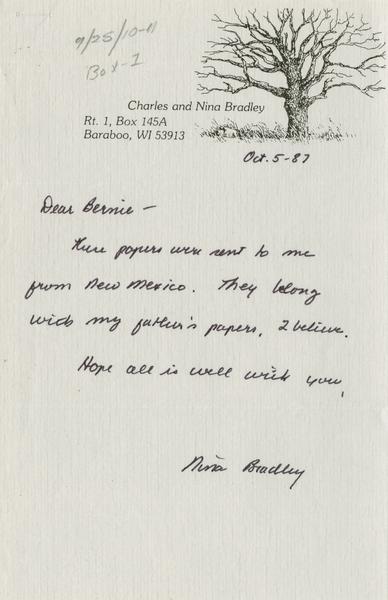 9/25/10-11
Box-1
Charles and Nina Bradley
Rt. 1, Box 145A
Baraboo, WI 53913
Oct. 5-87
Dear Bernie —
These papers were sent to me
from New Mexico. They belong
with my father's papers, I believe.
Hope all is well with you.
Nina Bradley